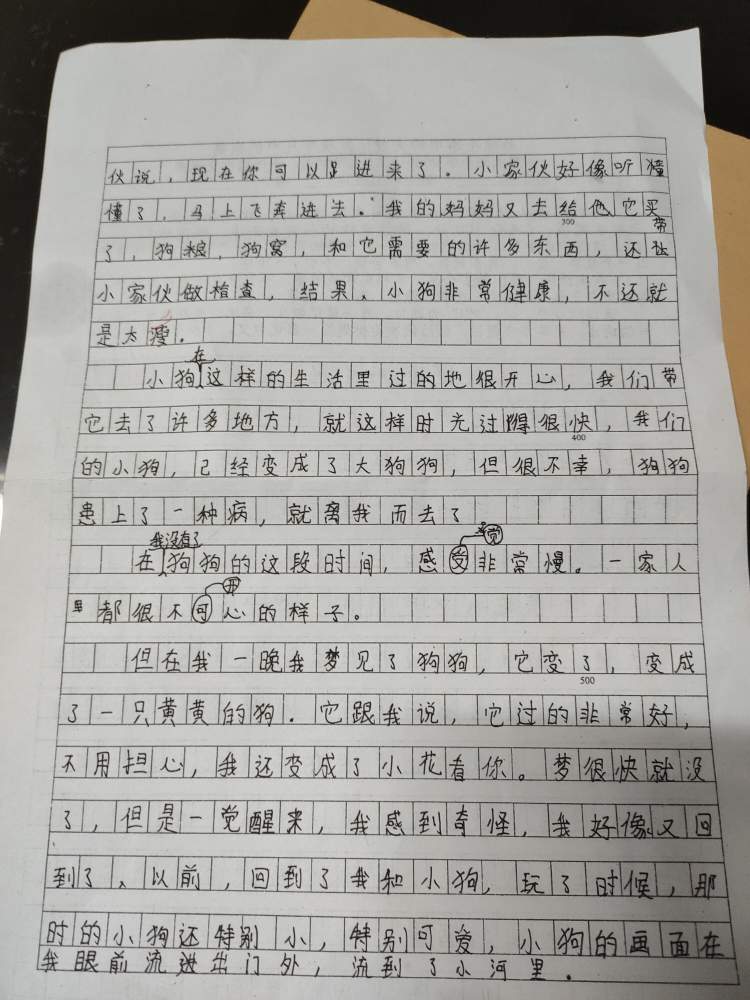 伙说，现在你可以足进来了。小家伙好像听懂
懂了，马上飞奔进去。我的妈妈又去给他它买
300
带
了，狗粮，狗窝，和它需要的许多东西，还让
小家伙做检查，结果、小狗非常健康，不还就
是太瘦.
在
小狗这样的生活里过的地很开心，我们带
它去了许多地方，就这样时光过得很快，我们
400
的小狗，已经变成了大狗狗，但很不幸，狗狗
患上了一种病，就离我而去了
我没有了
觉
在狗狗的这段时间，感受非常慢。一家人
开
都很不可心的样子。
但在我一晚我梦见了狗狗，它变了，变成
500
了一只黄黄的狗.它跟我说，它过的非常好，
不用担心，我还变成了小花看你。梦很快就没
了，但是一觉醒来，我感到奇怪，我好像又回
到了、以前，回到了我和小狗，玩了时候，那
时的小狗还特别小，特别可爱，小狗的画面在
我眼前流进出门外，流到了小河里。